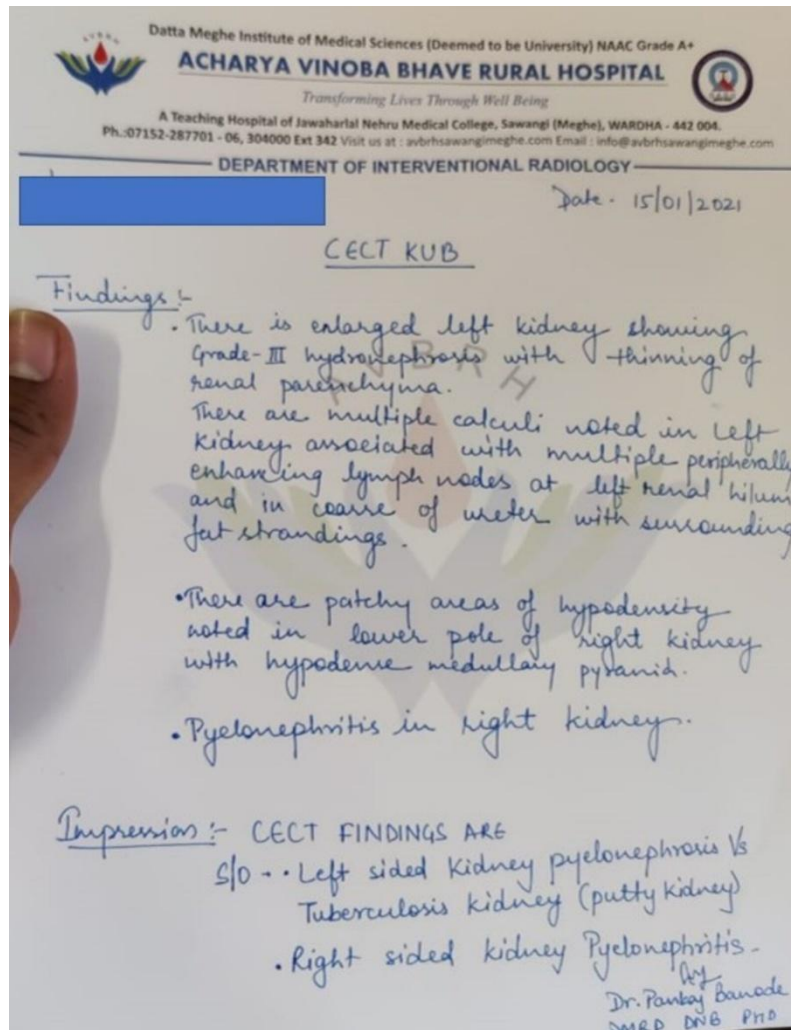 AVBRH
Datta Meghe Institute of Medical Sciences (Deemed to be University) NAAC Grade A+
ACHARYA VINOBA BHAVE RURAL HOSPITAL
Transforming Lives Through Well Being
A Teaching Hospital of Jawaharlal Nehru Medical College, Sawangi (Meghe), WARDHA - 442 004.
Ph.:07152-287701 - 06, 304000 Ext 342 Visit us at : avbrhsawangimeghe.com Email : info@avbrhsawangimeghe.com
DEPARTMENT OF INTERVENTIONAL RADIOLOGY
Date - 15/01/2021
CECT KUB
Findings :-
• There is enlarged left kidney showing
Grade-III hydronephrosis with thinning of
renal parenchyma.
AVBRH
There are multiple calculi noted in left
kidney associated with multiple peripherally
enhancing lymph nodes at left renal hilum
and in coarse of ureter with surrounding
fat strandings.
• There are patchy areas of hypodensity
noted in lower pole of right kidney
with hypodense medullary pyramid.
• Pyelonephritis in right kidney.
Impression :- CECT FINDINGS ARE
S/O - • Left sided kidney pyelonephrosis Vs
Tuberculosis kidney (putty kidney)
• Right sided kidney Pyelonephritis -
Dr. Pankaj Banode
DMRD DNB PHD